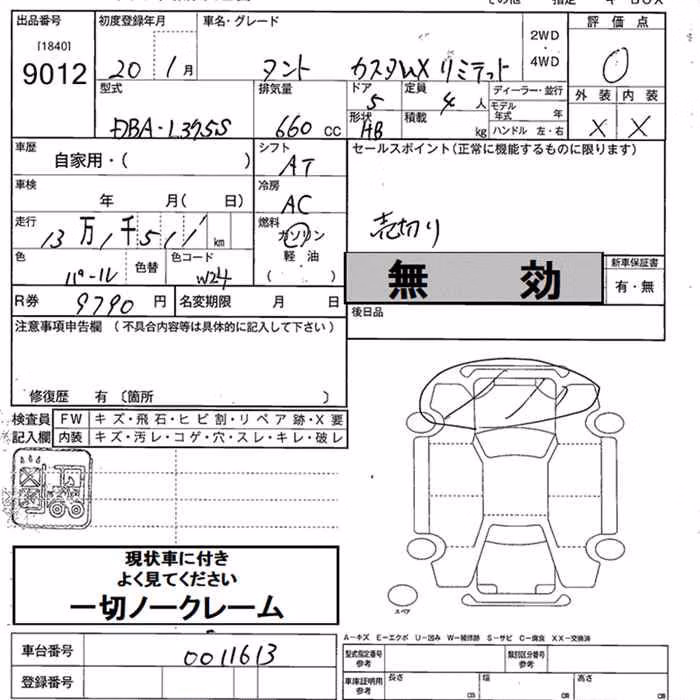 その他 指定 4 BOX
出品番号 初度登録年月 車名・グレード 2WD 4WD 評価点
[1840]
9012 20 1月 タント カスタムX リミテッド 0
型式 排気量 ドア 定員 ディーラー・並行 外装 内装
DBA-L375S 660 CC 5 4人 モデル年式 年 X X
形状 HB 積載 kg ハンドル 左・右
車歴 シフト セールスポイント(正常に機能するものに限ります)
自家用・( AT
車検 冷房
年 月( 日) AC
走行 燃料
13万1千511km ガソリン 売切り
色 色替 色コード 軽油
パール W24 ( )
無効 新車保証書
有・無
R券 9790円 名変期限 月 日
後日品
注意事項申告欄(不具合内容等は具体的に記入して下さい)
修復歴 有〔箇所 〕
検査員 FW キズ・飛石・ヒビ割・リペア跡・X要
記入欄 内装 キズ・汚レ・コゲ・穴・スレ・キレ・破レ
現状車に付き
よく見てください
一切ノークレーム
スペア
車台番号 0011613
登録番号
A-キズ E-エクボ U-凹み W-補修跡 S-サビ C-腐食 XX-交換済
型式指定番号 参考 類別区分番号 参考
車庫証明用 参考 長さ cm 幅 cm 高さ cm